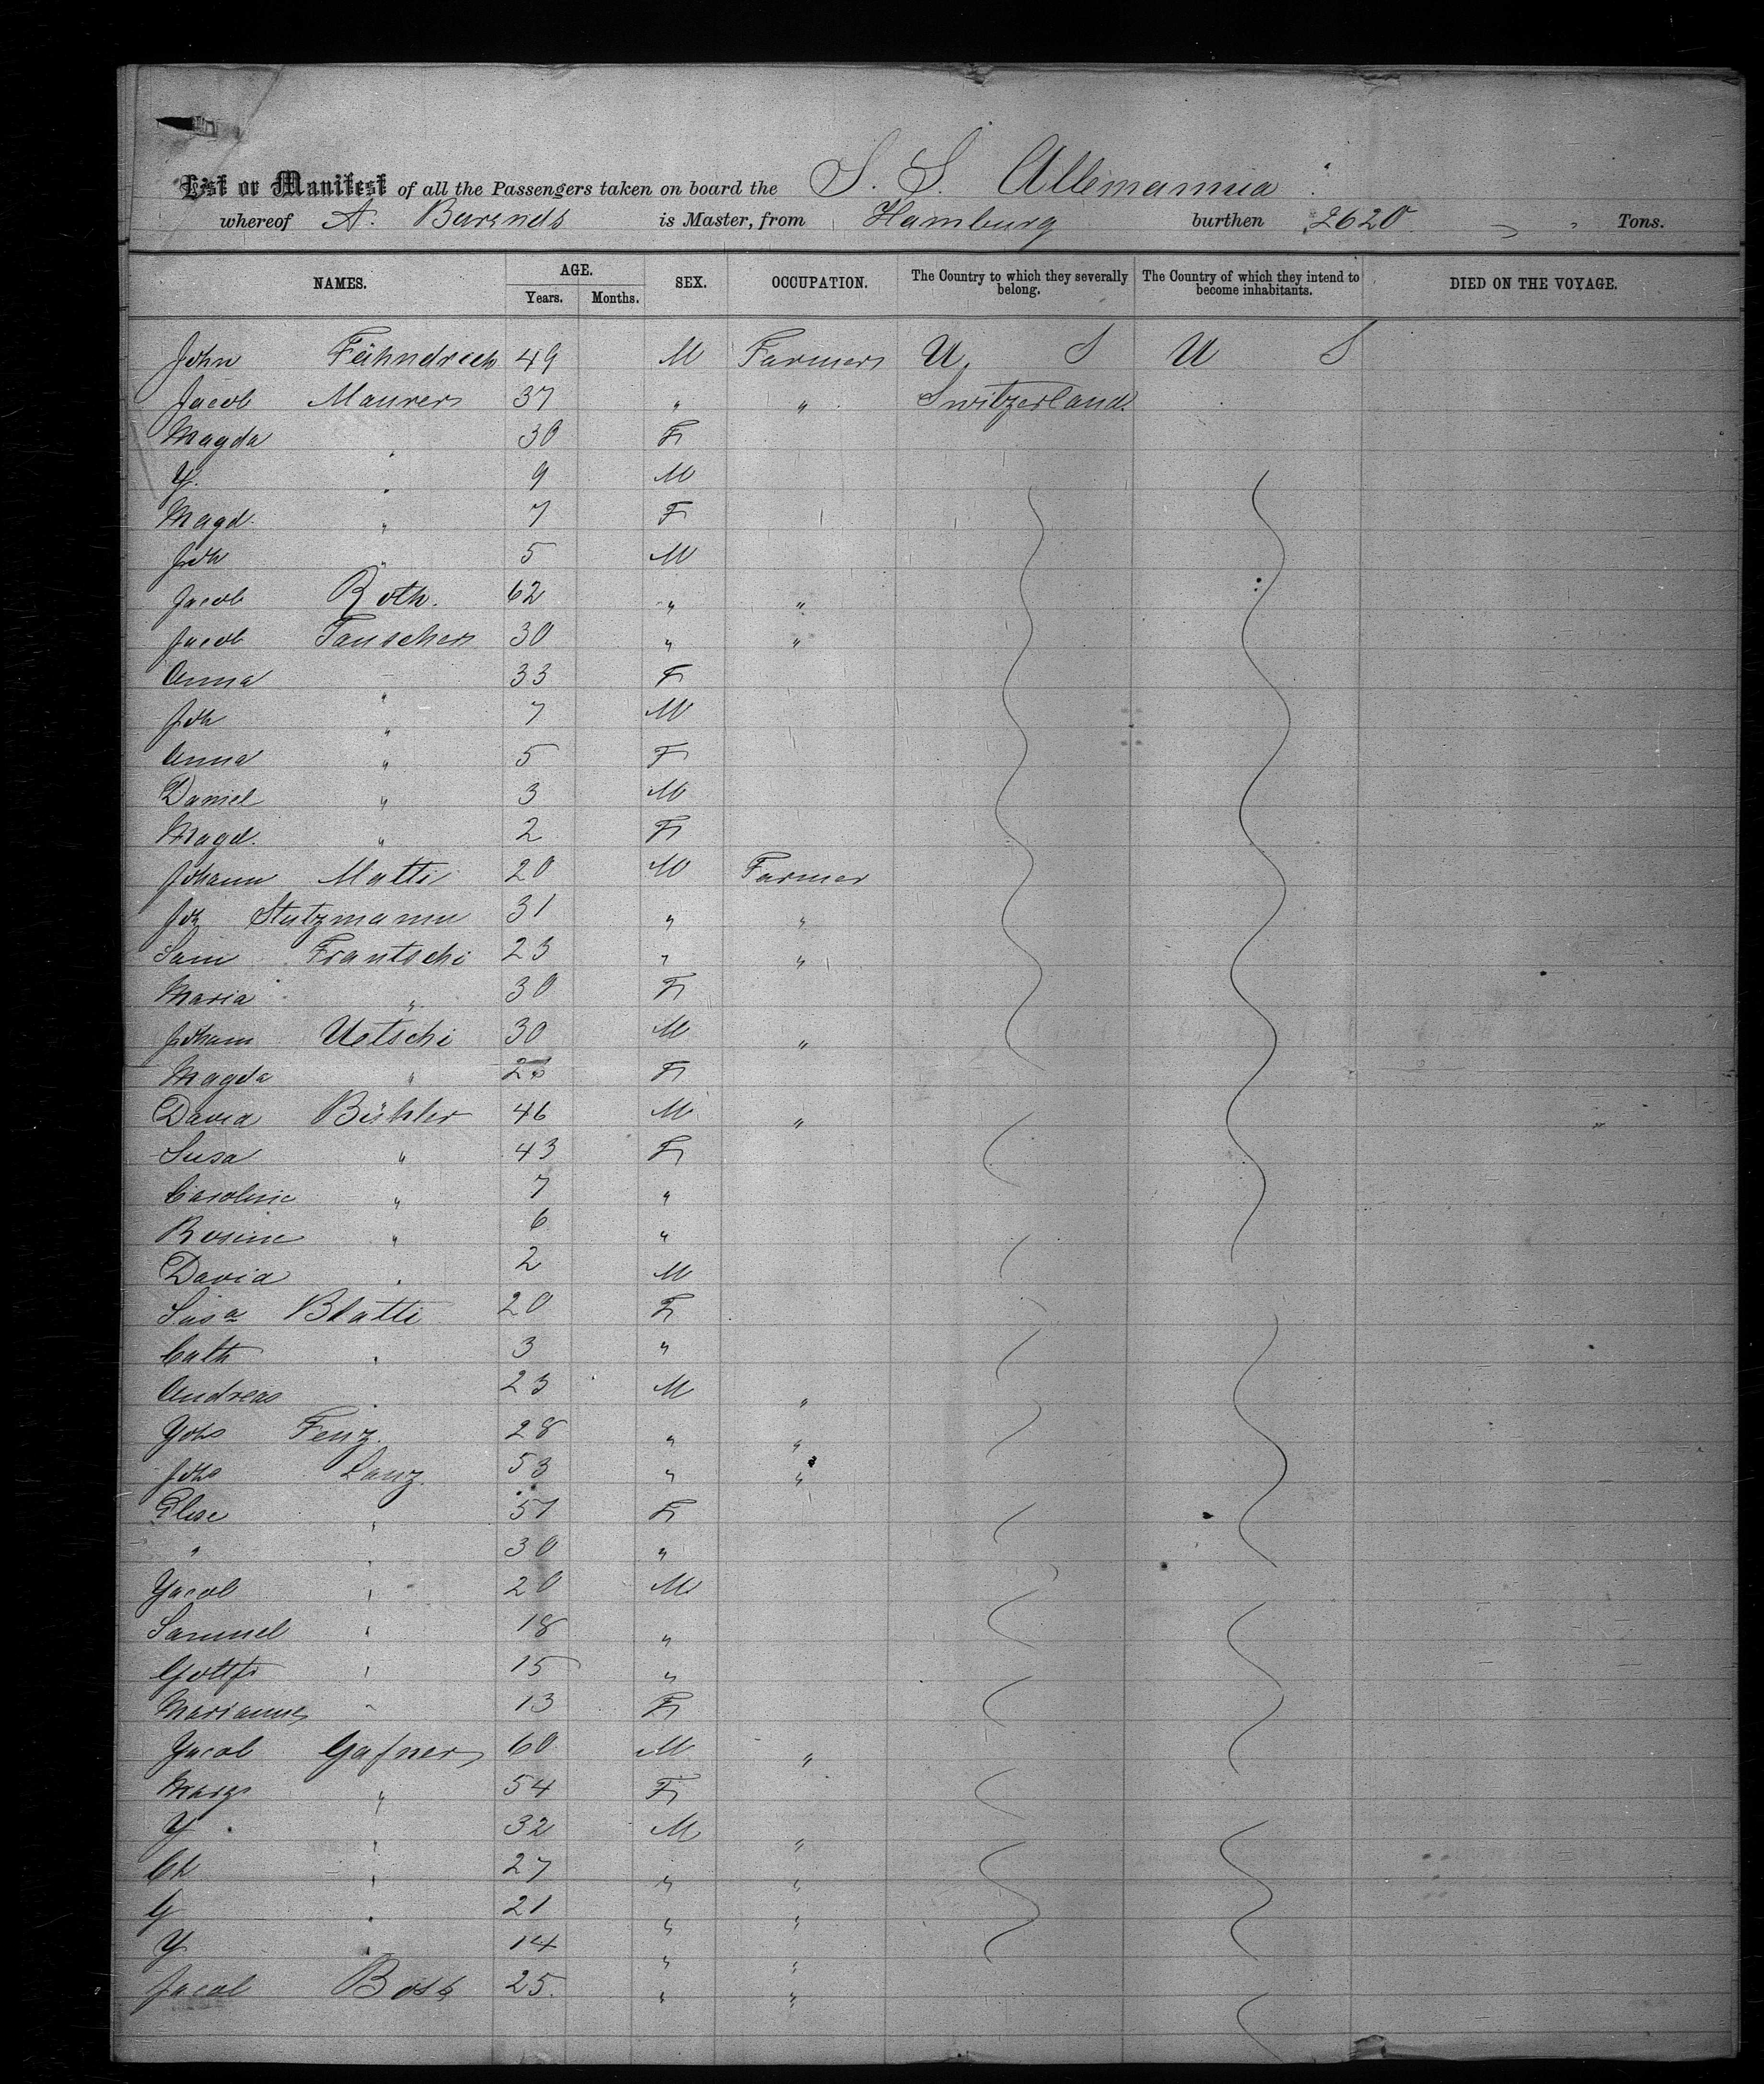 List or Manifest of all the Passengers taken on board the S. S. Allemannia
whereof A. Barends is Master, from Hamburg burthen 2620 " Tons.
NAMES. AGE. Years. Months. SEX. OCCUPATION. The Country to which they severally belong. The Country of which they intend to become inhabitants. DIED ON THE VOYAGE.
John Fähndrich 49 M Farmer U. S U S
Jacob Maurer 37 " " Switzerland.
Magda " 30 F
Y. " 9 M
Magd. " 7 F
Joh " 5 M
Jacob Roth. 62 " "
Jacob Tauscher 30 " "
Anna " 33 F
Joh " 7 M
Anna " 5 F
Daniel " 3 M
Magd. " 2 F
Johann Matti 20 M Farmer
Joh Stutzmann 31 " "
Sam Frautschi 23 " "
Maria " 30 F
Johann Uetschi 30 M "
Magda " F
David Bühler 46 M "
Susa " 43 F
Caroline " 7 "
Rosine " 6 "
David " 2 M
Susa Blatti 20 F
Cath " 3 "
Andreas " 23 M "
Yohs Fenz. 28 " "
Johs Lanz. 53 " "
Elise " 51 F
" " 30 "
Yacob " 20 M
Samuel " 18 "
Gottfr " 15 "
Marianne " 13 F
Yacob Gafner 60 M "
Marg " 54 F
Y. " 32 M "
Ch " 27 " "
G " 21 " "
Y " 14 " "
Jacob Boss 25. " "